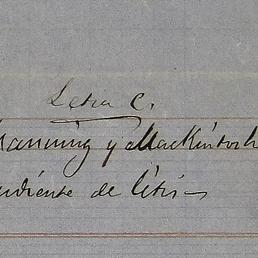 Letra C.
Manning y Mackintosh
ndiente de litis